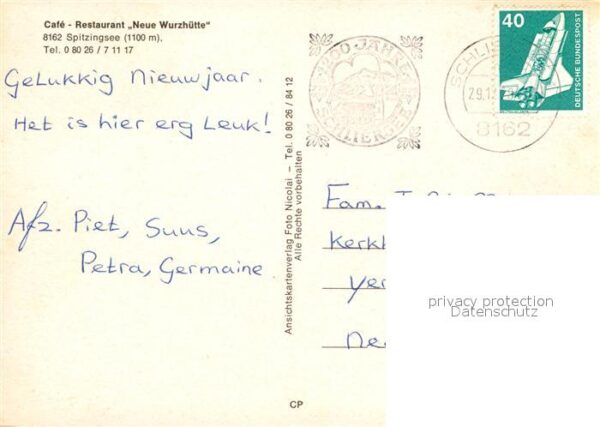 Café - Restaurant „Neue Wurzhütte"
8162 Spitzingsee (1100 m),
Tel. 0 80 26 / 7 11 17
Gelukkig Nieuwjaar.
Het is hier erg Leuk!
Afz. Piet, Suus,
Petra, Germaine
Ansichtskartenverlag Foto Nicolai – Tel. 0 80 26 / 84 12
Alle Rechte vorbehalten
CP
JAHRE
SCHLIERSEE
8162
40
DEUTSCHE BUNDESPOST
Fam.
privacy protection
Datenschutz